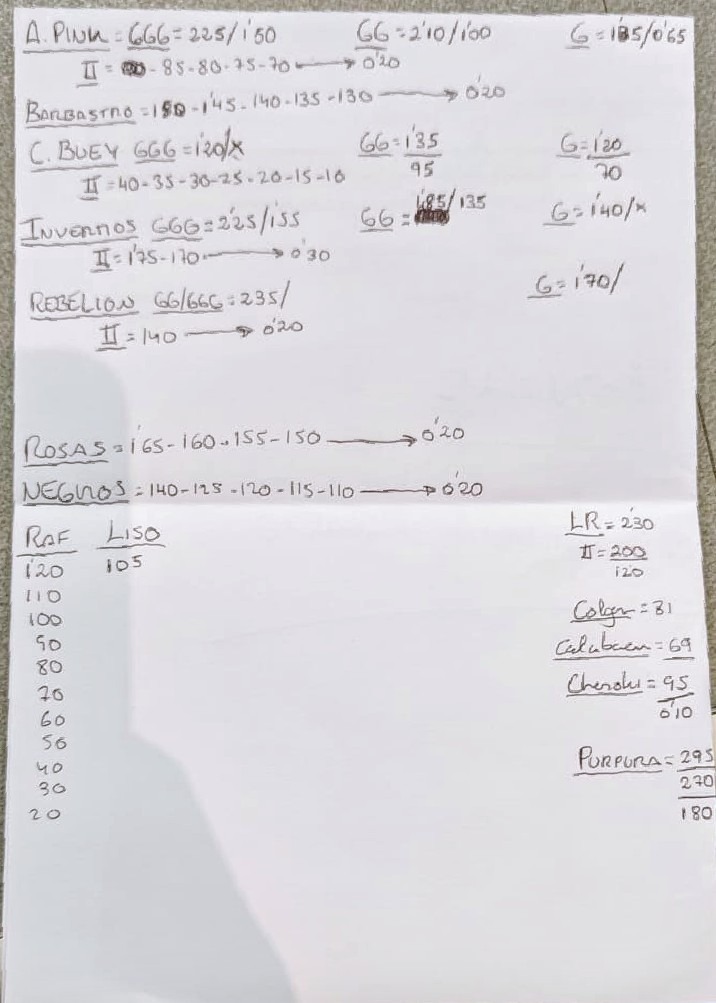 A. PINK = GGG = 225/1'50 GG = 2'10/1'00 G = 185/0'65
II = - 85-80-75-70 → 0'20
BARBASTRO = 150-1'45-140-135-130 → 0'20
C. BUEY GGG = 1'20/x GG = 1'35/95 G = 1'20/70
II = 40-35-30-25-20-15-10
INVERNOS GGG = 2'25/1'55 GG = 1'85/135 G = 1'40/x
II = 1'75-170 → 0'30
REBELION GG/GGG = 235/ G = 1'70/
II = 140 → 0'20
ROSAS = 1'65-160-155-150 → 0'20
NEGROS = 140-125-120-115-110 → 0'20
RAF LISO LR = 2'30
1'20 105 II = 200/120
110
100 = 81
90 = 69
80
70 = 95/0'10
60
50
40 PURPURA = 295
30 270
20 180